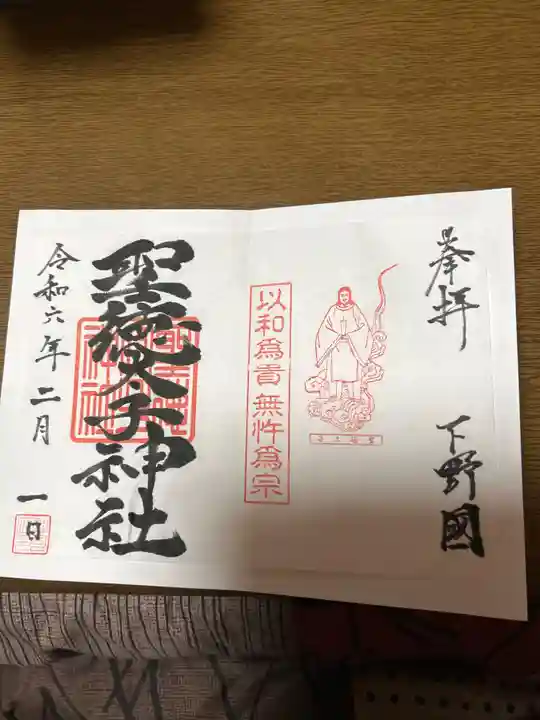 奉拝
下野國
以和為貴無忤為宗
聖徳太子神社
令和六年二月一日